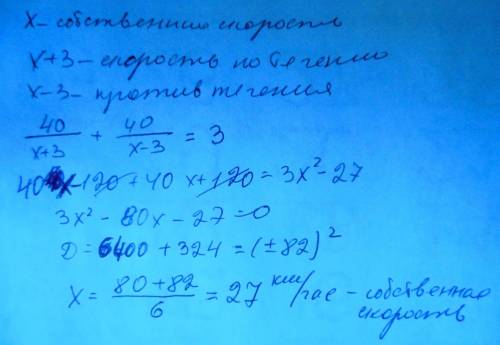 x - собственная скорость
x+3 - скорость по течению
x-3 - против течения
40/(x+3) + 40/(x-3) = 3
40x-120+40x+120=3x²-27
3x²-80x-27=0
D=6400+324=(±82)²
x = (80+82)/6 = 27 км/час - собственная скорость